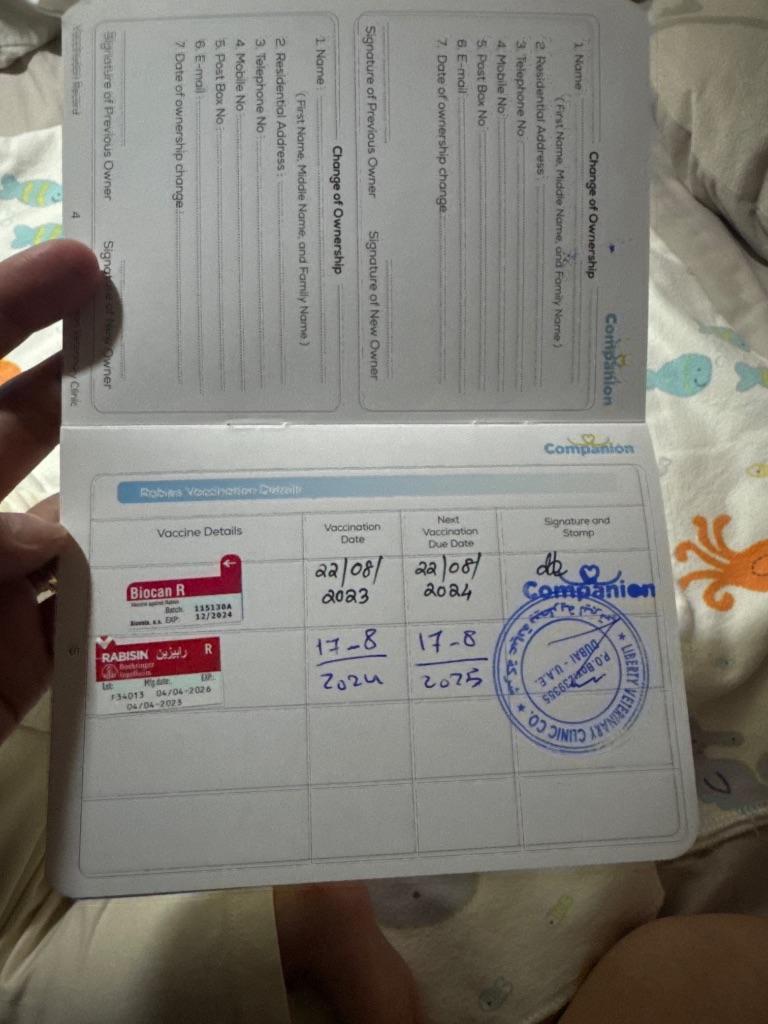 Companion
Change of Ownership
1. Name :
( First Name, Middle Name, and Family Name )
2. Residential Address :
3. Telephone No :
4. Mobile No :
5. Post Box No :
6. E-mail :
7. Date of ownership change :
Signature of Previous Owner Signature of New Owner
Change of Ownership
1. Name :
( First Name, Middle Name, and Family Name )
2. Residential Address :
3. Telephone No :
4. Mobile No :
5. Post Box No :
6. E-mail :
7. Date of ownership change :
Signature of Previous Owner Signature of New Owner
Vaccination Record 4 Clinic
Companion
Rabies Vaccination Details
Vaccine Details
Vaccination
Date
Next
Vaccination
Due Date
Signature and
Stamp
Biocan R
Vaccine against Rabies
Batch: 115130A
Bioveta, a.s. EXP: 12/2024
22/08/
2023
22/08/
2024
Companion
RABISIN رابيزين R
Boehringer
Ingelheim
Lot: Mfg date: EXP:
F34013 04/04-2026
04/04-2023
17-8
2024
17-8
2025
LIBERTY VETERINARY CLINIC CO.
DUBAI - U.A.E
5